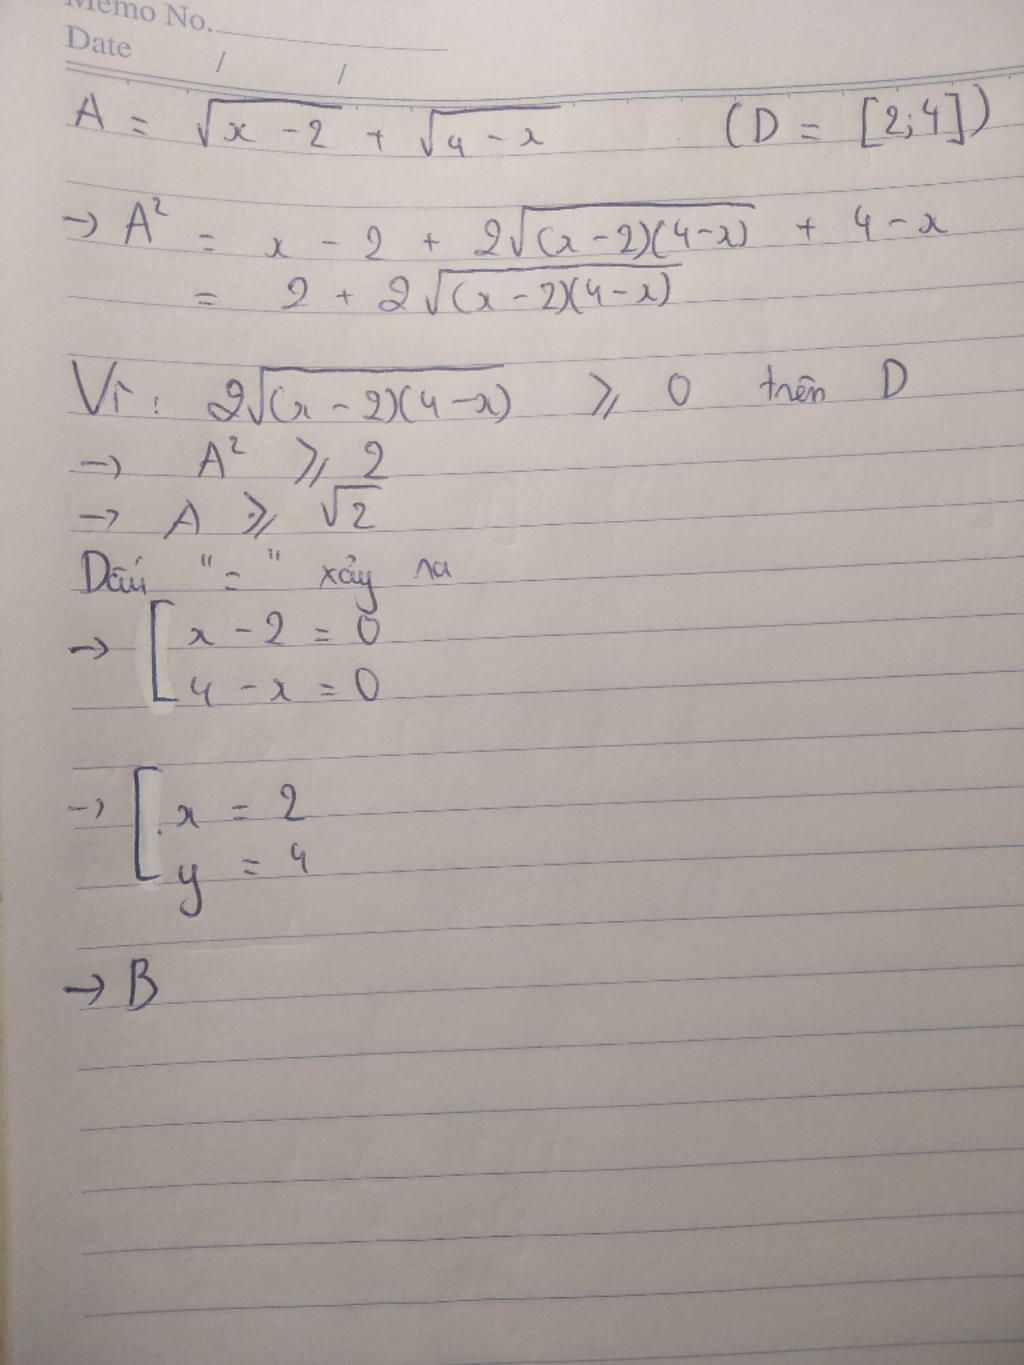 Memo No.
Date / /
A = √(x - 2) + √(4 - x) (D = [2;4])
→ A² = x - 2 + 2√((x - 2)(4 - x)) + 4 - x
= 2 + 2√((x - 2)(4 - x))
Vì: 2√((x - 2)(4 - x)) ⩾ 0 trên D
→ A² ⩾ 2
→ A ⩾ √2
Dấu "=" xảy ra
→ [ x - 2 = 0
4 - x = 0
→ [ x = 2
y = 4
→ B